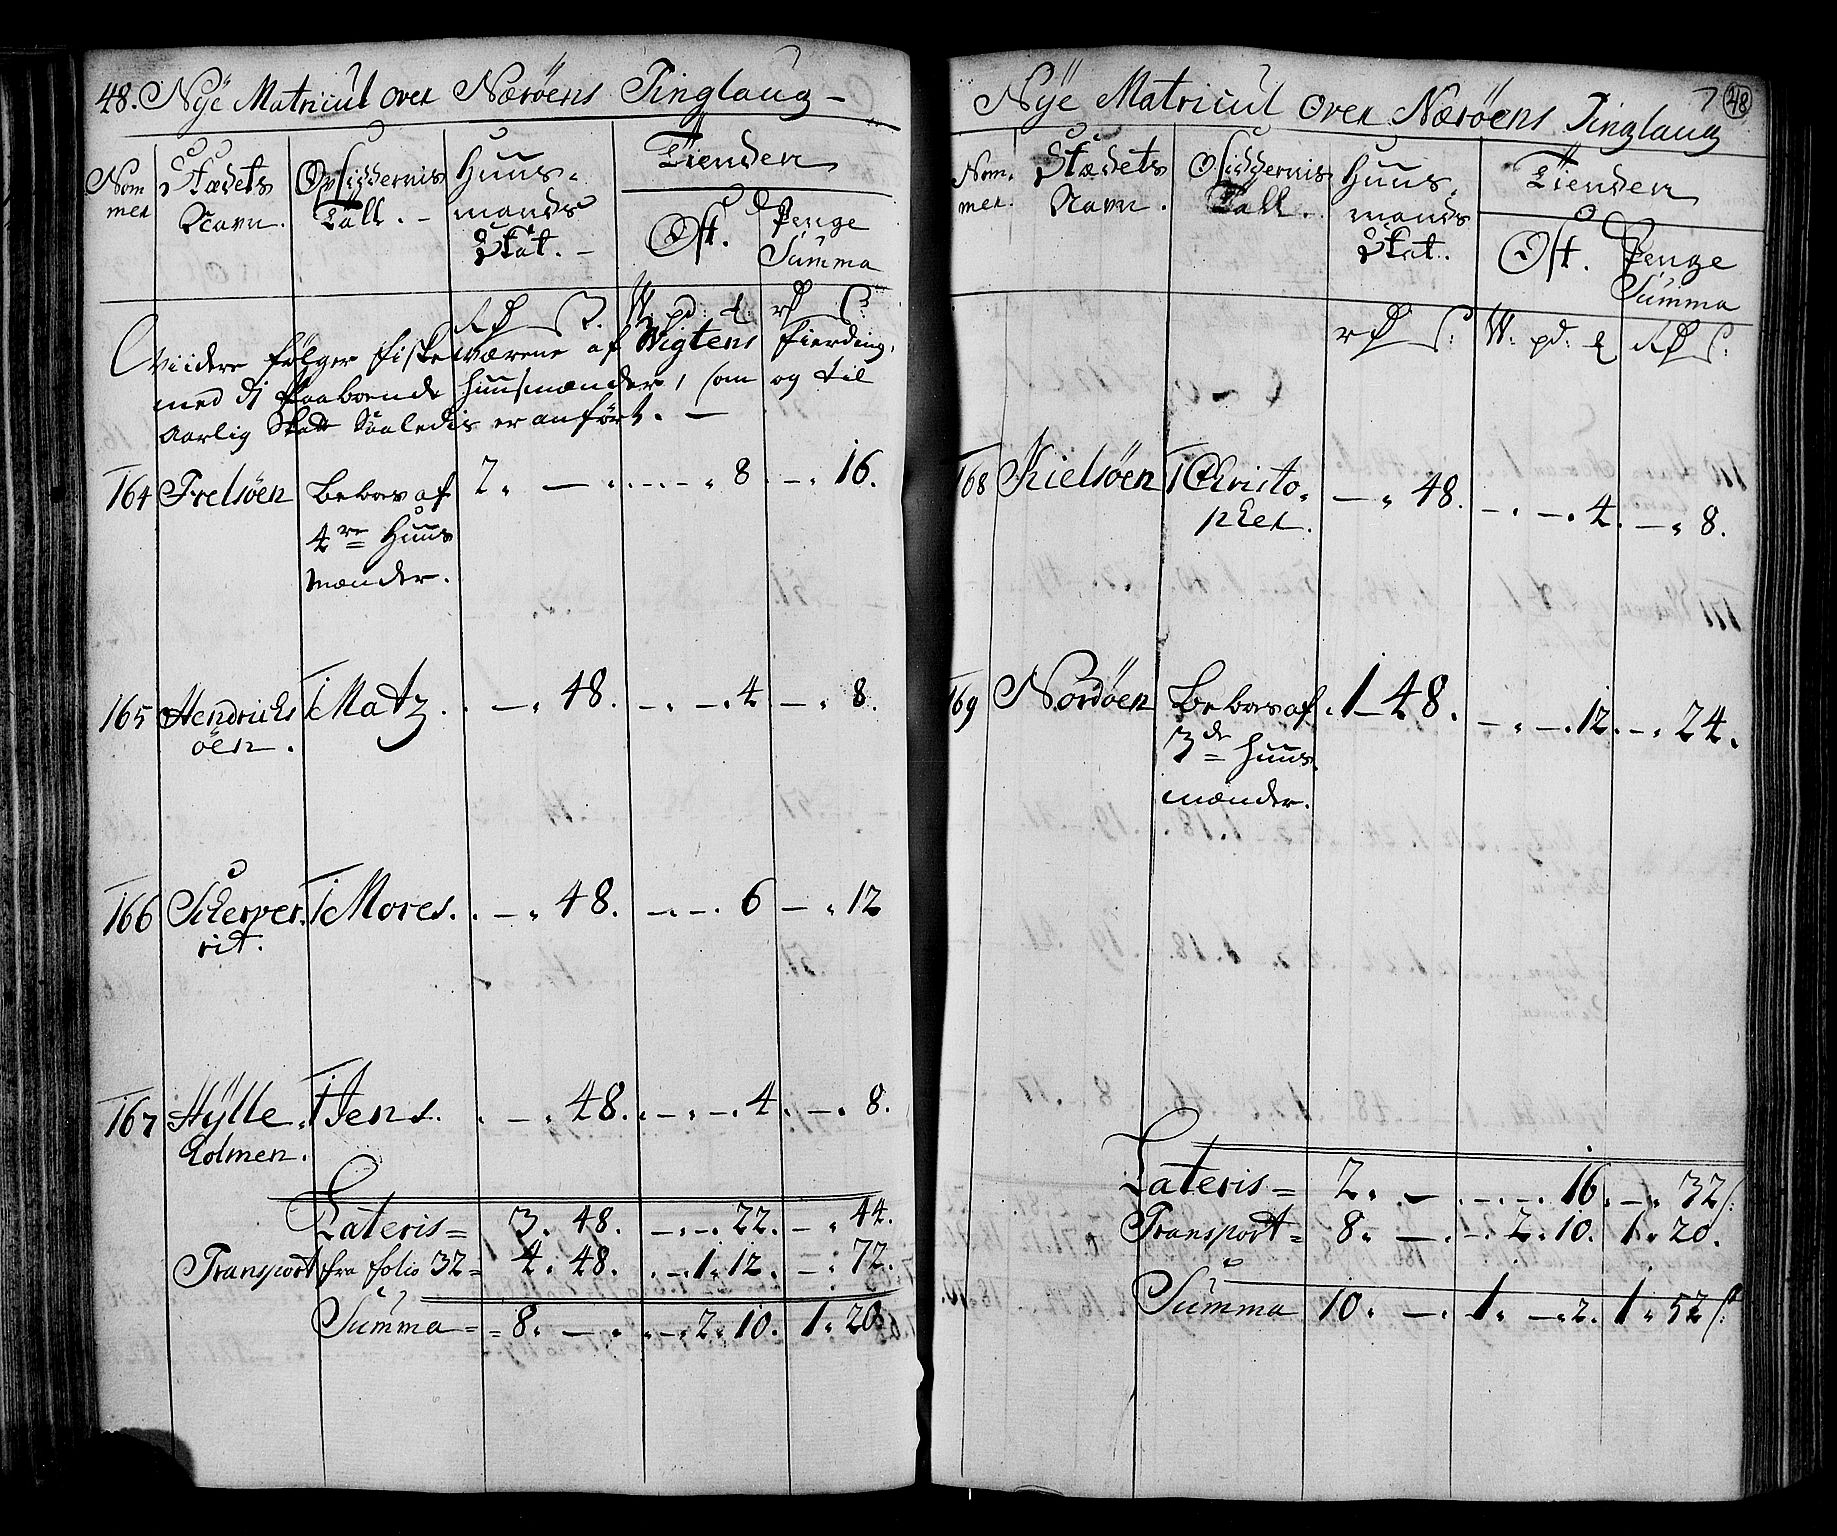 48. Nÿe Matricul over Nærøens Tinglaug –
Nom
mer
Stædets
Navn.
Opsiddernis
Tall. –
Huus-
mands
Skat. –
Tienden
Ost.
Penge
Summa
Rd ß. W. pd: rd ß:
Viidere følger fiskeværene af Vigtens fierding,
med di paaboende huusmænder, som og til
Aarlig Skatt Saaledis er anført. –
164 Frelsöen Beboes af 2. — . . . . . 8. – . 16.
4re Huus
mænder.
165 Hendrichs 1 Matz. . – . 48. – . – . 4 – . 8.
öen.
166 Scherver- 1 Mores. . – . 48. – . – . 6 – . 12
rit.
167 Hÿlle- 1 Jens. . – . 48. . – . – . 4. – . 8.
holmen.
Lateris = 3. 48. – . – . 22. – . 44.
Transport fra folio 32 = 4. 48. . – . 1. 12. – . 72.
Summa = = 8. – . . – . 2. 10. 1. 20
Nÿe Matricul over Nærøens Tinglaug
48
Nom-
mer.
Stædets
Navn.
Opsiddernis
Tall.
Huus-
mands
Skat.
Tienden
Ost.
Penge
Summa
rd ß: W. pd. Rd ß:
168 Kielsöen 1 Christo- – . 48. – . – . 4. – . 8.
pher.
169 Nordöen Beboes af . 1 – 48. – . – . 12. – . 24.
3de Huus-
mænder.
Lateris = 2. – . – . – . 16. – . 32 ß.
Transport = 8. – . – . 2. 10. 1. 20.
Summa 10. – . 1. – . 2. 1. 52 ß.